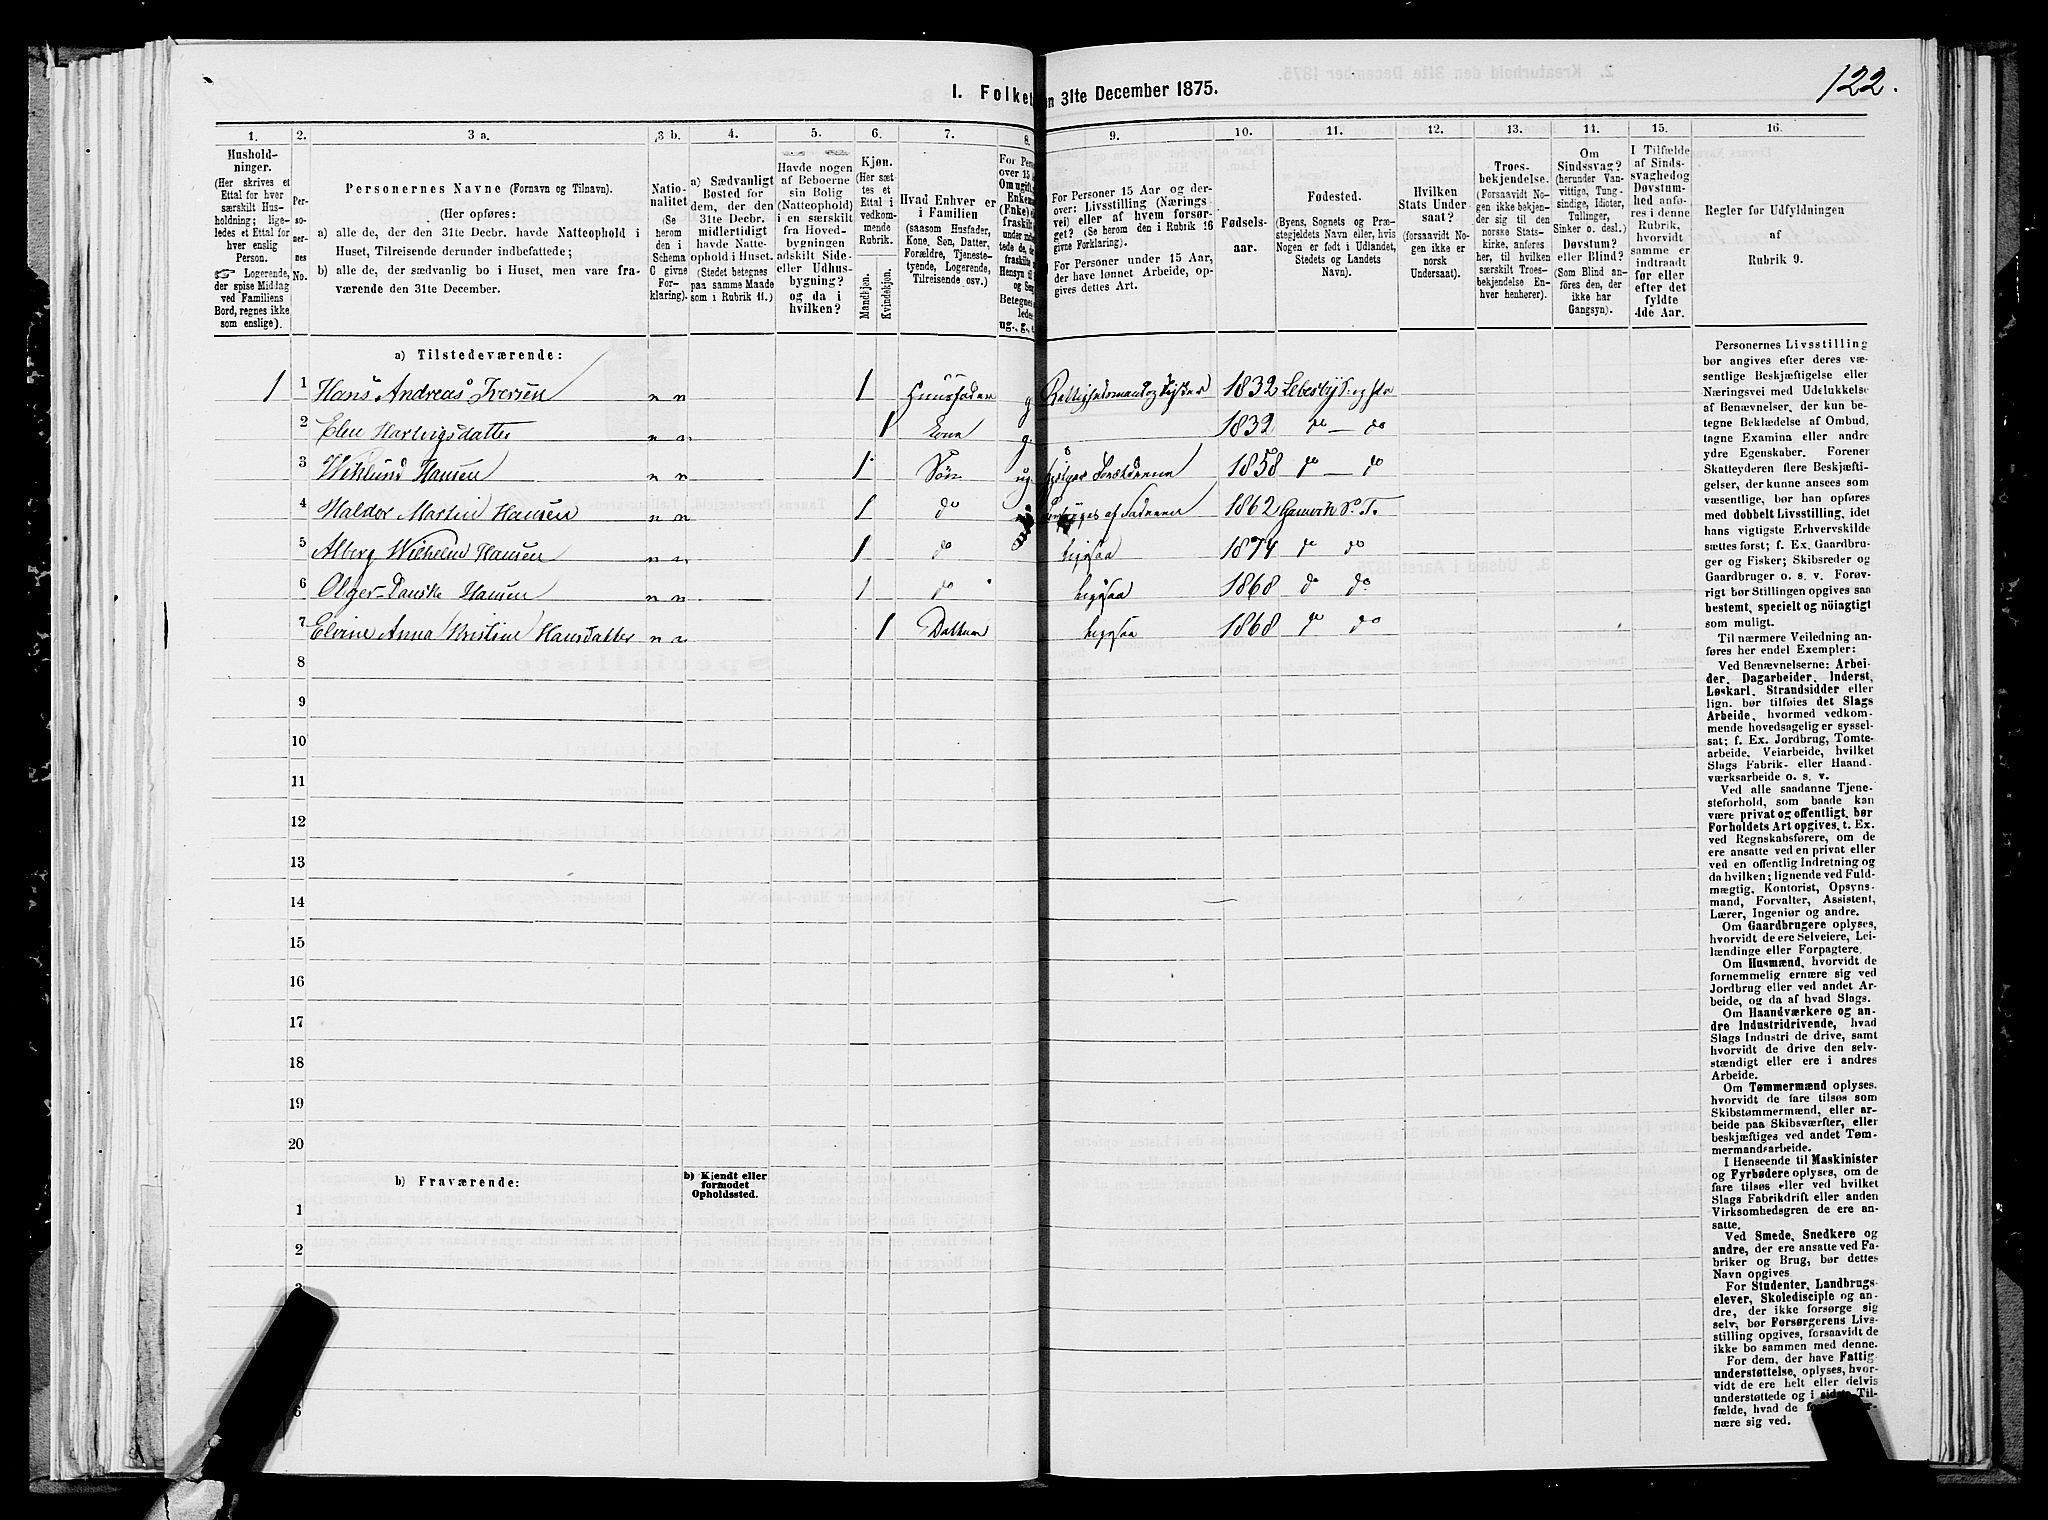 122.
I. Folket
n 31te December 1875.
1. 2. 3 a. 3 b. 4. 5. 6. 7. 8. 9. 10. 11. 12. 13. 14. 15. 16.
Hushold-
ninger.
(Her skrives et
Ettal for hver
særskilt Hus-
holdning; lige-
ledes et Ettal for
hver enslig
Person.
☞ Logerende,
der spise Middag
ved Familiens
Bord, regnes ikke
som enslige).
Per-
so-
ner-
nes
No.
Personernes Navne (Fornavn og Tilnavn).
(Her opføres:
a) alle de, der den 31te Decbr. havde Natteophold i
Huset, Tilreisende derunder indbefattede;
b) alle de, der sædvanlig bo i Huset, men vare fra-
værende den 31te December.
Natio-
nalitet
(Se
herom
den i
Schema
C givne
For-
klaring).
a) Sædvanligt
Bosted for
dem, der den
31te Decbr.
midlertidigt
havde Natte-
ophold i Huset.
(Stedet betegnes
paa samme Maade
som i Rubrik 11.)
Havde nogen
af Beboerne
sin Bolig
(Natteophold)
i en særskilt
fra Hoved-
bygningen
adskilt Side-
eller Udhus-
bygning?
og da i
hvilken?
Kjøn.
(Her sæt-
tes et
Ettal i
vedkom-
mende
Rubrik.
Mandkjøn.
Kvindekjøn.
Hvad Enhver er
i Familien
(saasom Husfader,
Kone, Søn, Datter,
Forældre, Tjeneste-
tyende, Logerende,
Tilreisende osv.)
For Pers
over 15 A
Om ugift,
Enkem
(Enke) e
fraskilt
under
tede de,
fraskilte
Hensyn til
og Sen
Betegnes
ledes
ug., g.,
For Personer 15 Aar og der-
over: Livsstilling (Nærings
vei) eller af hvem forsør-
get? (Se herom den i Rubrik 16
givne Forklaring).
For Personer under 15 Aar,
der have lønnet Arbeide, op-
gives dettes Art.
Fødsels-
aar.
Fødested.
(Byens, Sognets og Præ-
stegjeldets Navn eller, hvis
Nogen er født i Udlandet,
Stedets og Landets
Navn).
Hvilken
Stats Under
saat?
(forsaavidt No-
gen ikke er
norsk
Undersaat).
Troes-
bekjendelse.
(Forsaavidt No-
gen ikke bekjen-
der sig til den
norske Stats-
kirke, anføres
her, til hvilken
særskilt Troes-
bekjendelse En-
hver henhører).
Om
Sindssvag?
(herunder Van-
vittige, Tung-
sindige, Idioter,
Tullinger,
Sinker o. desl.)
Døvstum?
eller Blind?
(Som Blind an-
føres den, der
ikke har
Gangsyn).
I Tilfælde
af Sinds-
svaghed og
Døvstum-
hed anfø-
res i denne
Rubrik,
hvorvidt
samme er
indtraadt
før eller
efter det
fyldte
4de Aar.
Regler for Udfyldningen
af
Rubrik 9.
a) Tilstedeværende:
1 1 Hans Andreas Iversen n n 1 Huusfader g Rettighedsmand og Fisker 1832 Lebesby S. og Pr
2 Elen Hartvigsdatter n n 1 Kone g 1832 do — do
3 Wiklund Hansen n n 1 Søn ug hjelper Forældrene 1858 do — do
4 Haldor Martin Hansen n n 1 do Forsørges af Faderen 1862 Gamvik S. T.
5 Alberg Wilhelm Hansen n n 1 do ligesaa 1874 do do
6 Olger-Danske Hansen n n 1 do ligesaa 1868 do do
7 Elvine Anna Kristine Hansdatter n n 1 Datter ligesaa 1868 do do
8
9
10
11
12
13
14
15
16
17
18
19
20
b) Fraværende:
b) Kjendt eller
formodet
Opholdssted.
1
2
3
6
Personernes Livsstilling
bør angives efter deres væ-
sentlige Beskjæftigelse eller
Næringsvei med Udelukkelse
af Benævnelser, der kun be-
tegne Beklædelse af Ombud,
tagne Examina eller andre
ydre Egenskaber. Forener
Skatteyderen flere Beskjæfti-
gelser, der kunne ansees som
væsentlige, bør han opføres
med dobbelt Livsstilling, idet
hans vigtigste Erhvervskilde
sættes først; f. Ex. Gaardbru-
ger og Fisker; Skibsreder og
Gaardbruger o. s. v. Forøv-
rigt bør Stillingen opgives saa
bestemt, specielt og nöiagtigt
som muligt.
Til nærmere Veiledning an-
føres her endel Exempler:
Ved Benævnelserne: Arbei-
der, Dagarbeider, Inderst,
Løskarl, Strandsidder eller
lign. bør tilføies det Slags
Arbeide, hvormed vedkom-
mende hovedsagelig er syssel-
sat; f. Ex. Jordbrug, Tomte-
arbeide, Veiarbeide, hvilket
Slags Fabrik- eller Haand-
værksarbeide o. s. v.
Ved alle saadanne Tjene-
steforhold, som baade kan
være privat og offentligt, bør
Forholdets Art opgives, t. Ex.
ved Regnskabsførere, om de
ere ansatte ved en privat eller
ved en offentlig Indretning og
da hvilken; lignende ved Fuld-
mægtig, Kontorist, Opsyns-
mand, Forvalter, Assistent,
Lærer, Ingeniør og andre.
Om Gaardbrugere oplyses,
hvorvidt de ere Selveiere, Lei-
lændinge eller Forpagtere.
Om Husmænd, hvorvidt de
fornemmelig ernære sig ved
Jordbrug eller ved andet Ar-
beide, og da af hvad Slags.
Om Haandværkere og an-
dre Industridrivende, hvad
Slags Industri de drive, samt
hvorvidt de drive den selv-
stændigt eller ere i andres
Arbeide.
Om Tømmermænd oplyses,
hvorvidt de fare tilsøs som
Skibstømmermænd, eller ar-
beide paa Skibsværfter, eller
beskjæftiges ved andet Tøm-
mermandsarbeide.
I Henseende til Maskinister
og Fyrbødere oplyses, om de
fare tilsøs eller ved hvilket
Slags Fabrikdrift eller anden
Virksomhedsgren de ere an-
satte.
Ved Smede, Snedkere og
andre, der ere ansatte ved Fa-
briker og Brug, bør dettes
Navn opgives
For Studenter, Landbrugs-
elever, Skoledisciple og an-
dre, der ikke forsørge sig
selv, bør Forsørgerens Livs-
stilling opgives, forsaavidt de
ikke bo sammen med denne.
For dem, der have Fattig-
understøttelse, oplyses, hvor-
vidt de ere helt eller delvis
understøttede og i sidste Til-
fælde, hvad de
nære sig ved.